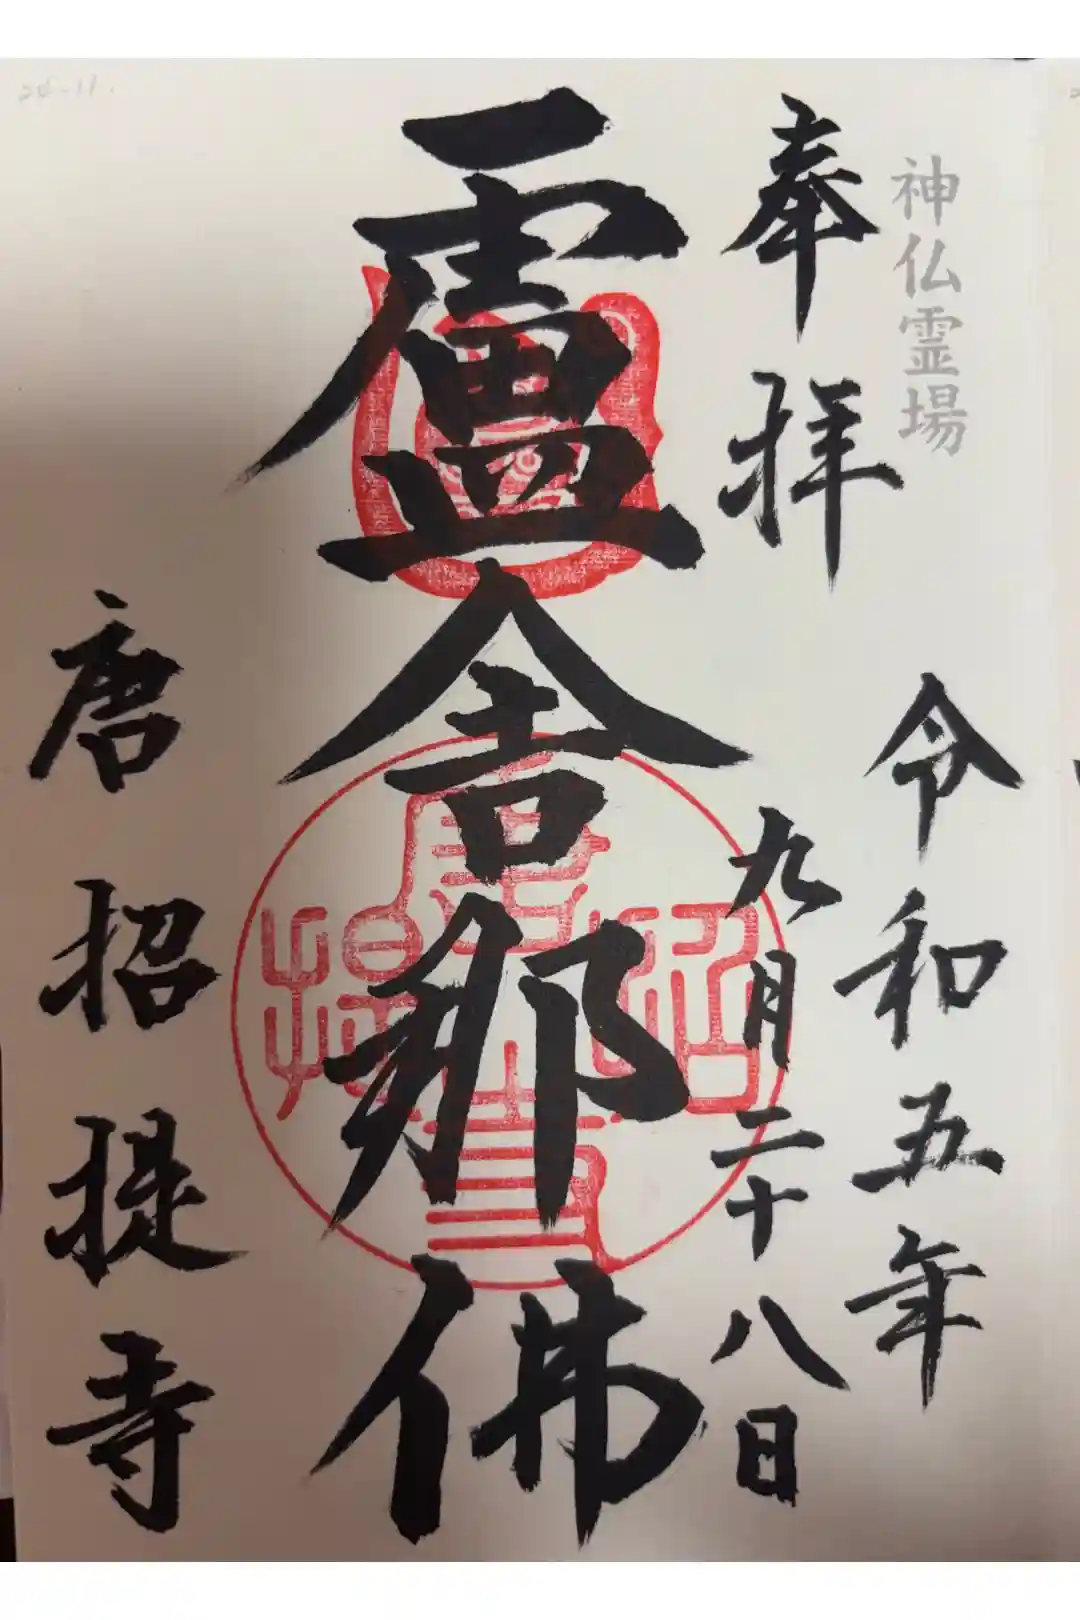 神仏霊場
奉拝
令和五年
九月二十八日
盧舎那佛
唐招提寺
唐招提寺
24-11.